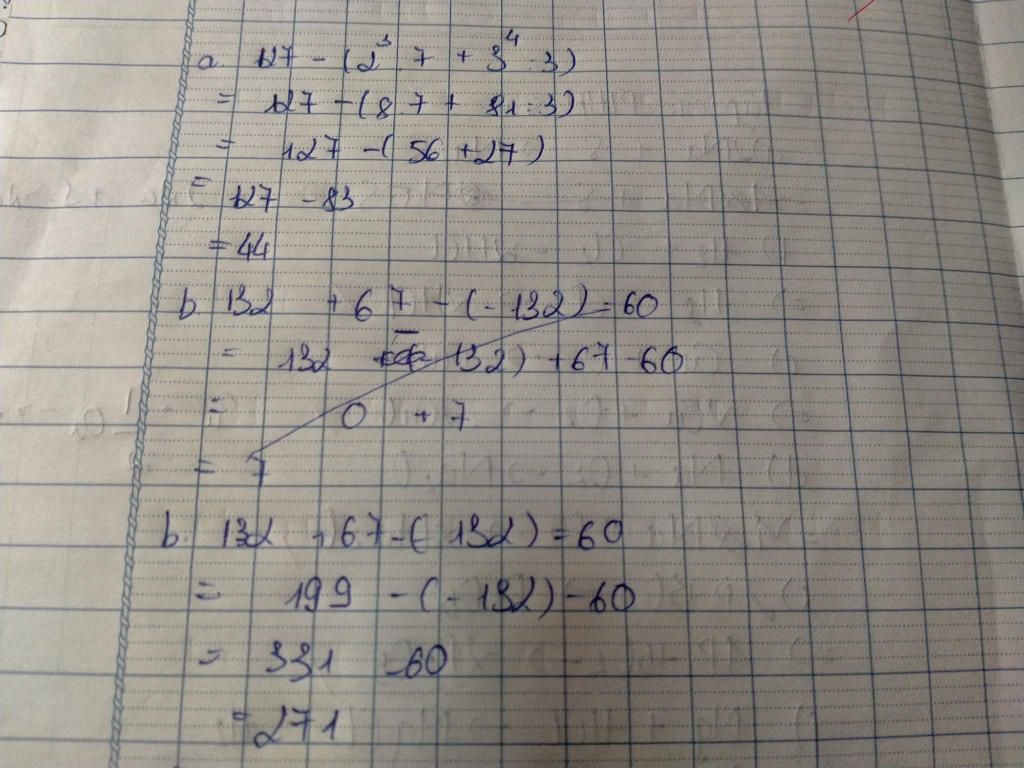 a. 127 - (2³ . 7 + 3⁴ : 3)
= 127 - (8 . 7 + 81 : 3)
= 127 - ( 56 + 27 )
= 127 - 83
= 44
b. 132 + 67 - ( - 132 ) = 60
= 132 - 132 ) + 67 - 60
= 0 + 7
= 7
b. 132 + 67 - ( - 132 ) = 60
= 199 - ( - 132 ) - 60
= 331 - 60
= 271